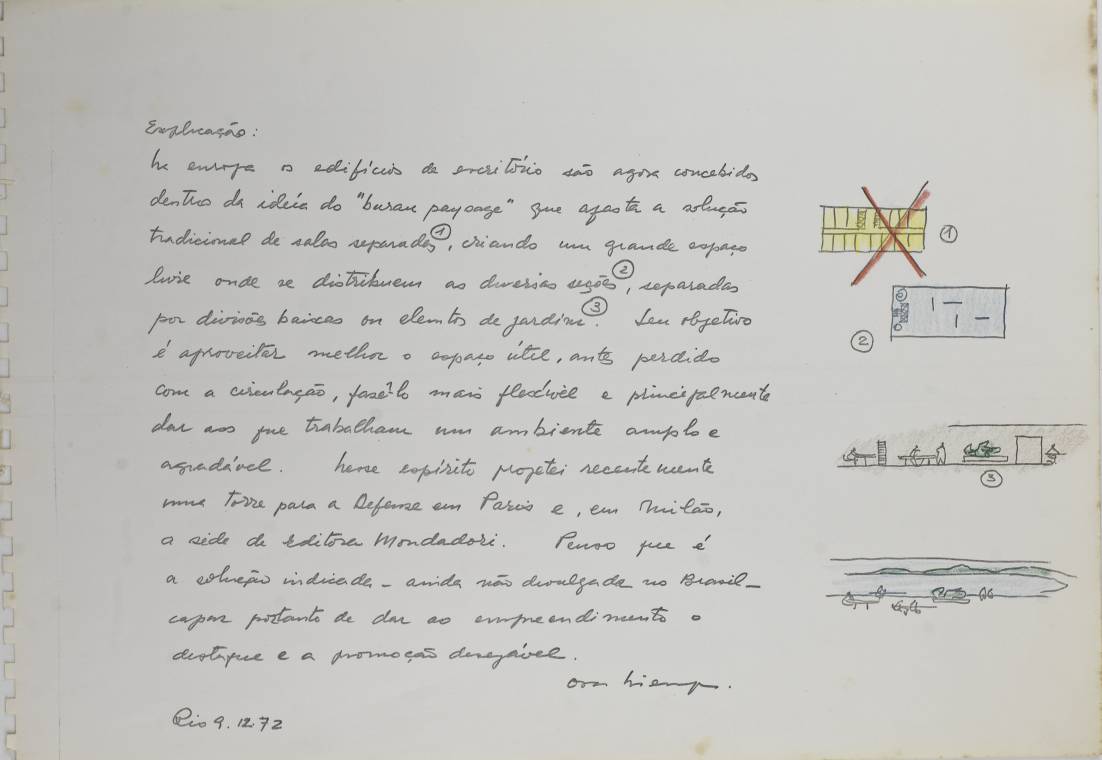 Explicação:
Na europa os edifícios de escritório são agora concebidos
dentro da idéia do "bureau paysage" que afasta a solução
tradicional de salas separadas①, criando um grande espaço
livre onde se distribuem as diversas seções②, separadas
por divisões baixas ou elemtos de jardim③. Seu objetivo
é aproveitar melhor o espaço útil, antes perdido
com a circulação, fazê-lo mais flexível e principalmente
dar aos que trabalham um ambiente amplo e
agradável. Nesse espírito projetei recentemente
uma torre para a Defense em Paris e, em Milão,
a séde da Editora Mondadori. Penso que é
a solução indicada - ainda não divulgada no Brasil -
capaz portanto de dar ao empreendimento o
destaque e a promoção desejável.
Oscar Niemeyer.
Rio 9.12.72
①
②
③